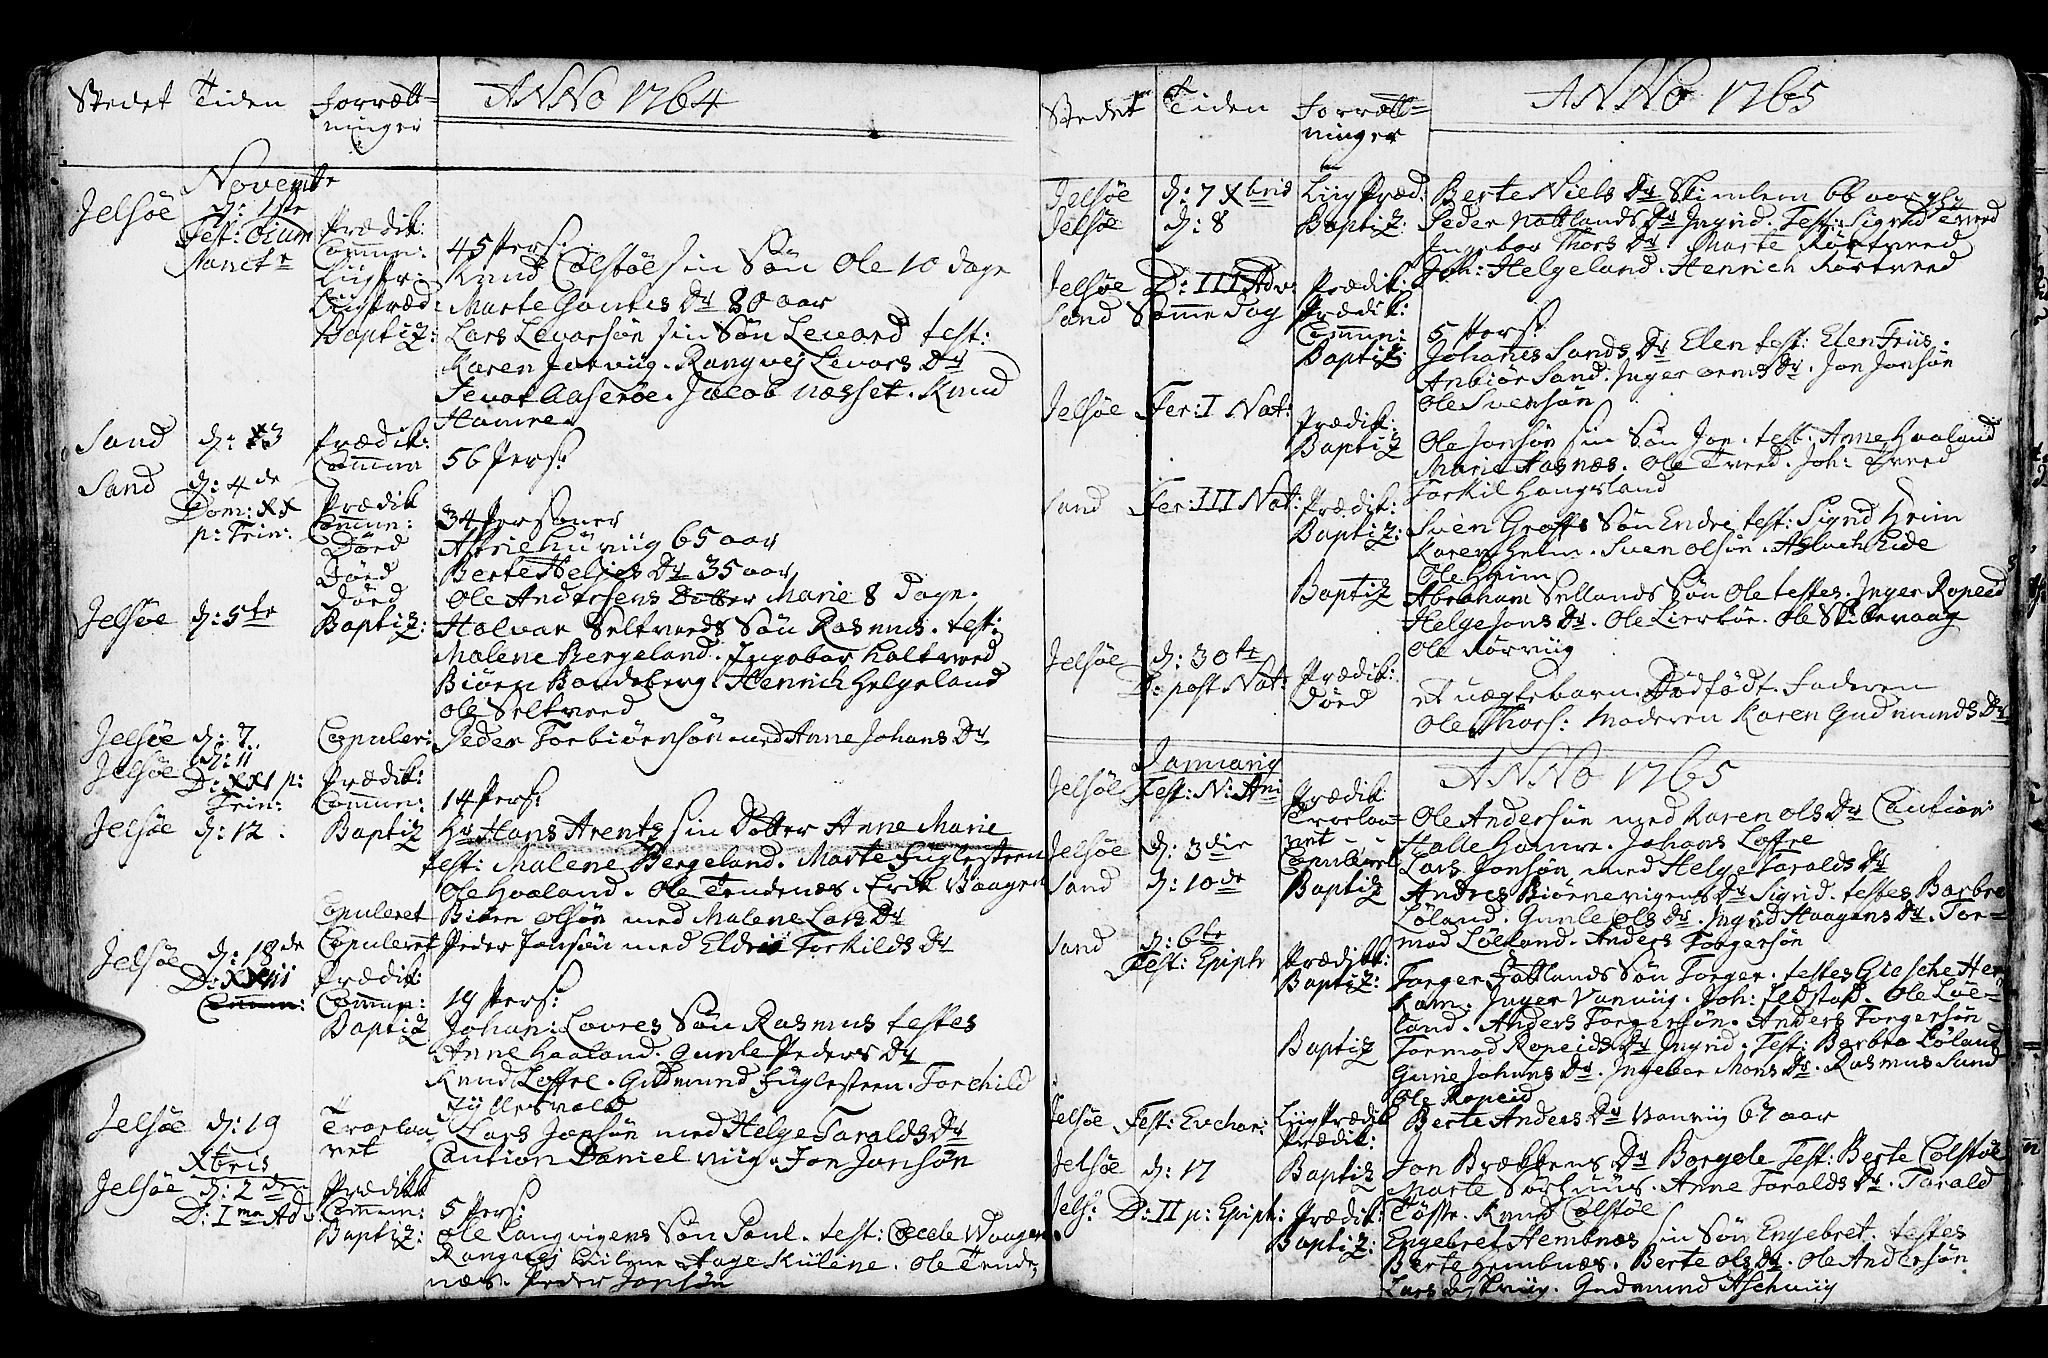 Stedet Tiden Forrætt=
ninger
ANNO 1764
Novembr
Jelsøe d: 1ste
Fest: Oium Prædik:
Sanct: Commun: 45 Pers:
Liigpr: Knud Colstøe sin Søn Ole 10 dage
Liigpræd: Marte Gautes Dr 80 aar
Baptiz: Lars Levarsøn sin Søn Levard test:
Karen Jorviig. Rangvej Levars Dr
Sevat Aaserøe. Jacob Næsset. Knud
Hamre
Sand d: 3 Prædik:
Commun 56 Pers:
Sand d: 4de
Dom: XX Prædik
p: Trin: Commun: 34 Personer
Dørd 65 aar
Dørd Berte Heljes Dr 35 aar
Dørd Ole Andersens Dotter Marie 8 Dage.
Jelsøe d: 5te Baptiz: Halvar Seltveeds Søn Rasmus. test:
Malene Bergeland. Ingebor Haltveed
Biøren Bondeberg. Henrich Helgeland
Ole Seltveed
Jelsøe d: 7 Copuler: Peder Torbiørnsøn med Anne Johans Dr
Jelsøe d: 11
D: XXI p: Prædik:
Trin: Commun: 14 Pers:
Jelsøe d: 12. Baptiz Hr Hans Arentz sin Dotter Anne Marie
test: Malene Bergeland. Marte Fuglesteen
Ole Haaland. Ole Tendenæs. Erik Vaagen
Copuleret Biøren Olsøn med Malene Lars Dr
Jelsøe d: 18de Copuleret Peder Jonsøn med Eldri Torkilds Dr
D: XXII Prædik
Commun: Commun: 19 Pers:
Baptiz Johan: Lovres Søn Rasmus testes
Anne Haaland. Gunle Peders Dr
Knud Loffre. Gudmund Fuglesteen. Torchild
Jelsøe d: 19 Troelov
net Lars Jonsøn med Helge Taralds Dr
Caution Daniel Viig. Jon Jonsøn
Xbris
Jelsøe d: 2den Prædikk
D: Ima Adv: Commun: 5 Pers:
Baptiz: Ole Langvigens Søn Poul. test: Cecele Waagen.
Rangvej Kiilene Aage Kiilene. Ole Tende,
næs. Peder Jonsøn
Stedet Tiden Forrætt=
ninger
ANNO 1765
Jelsøe d: 7 Xbris Liigpræd: Berte Niels Dr Skimlem 66 aar gl.
Jelsøe d: 8 Baptiz: Peder Natlands Dr Ingrid. Test: Sigrid Tveed
Ingebor Thors Dr Marte Rørtveed
Joh: Helgeland. Henrich Rørtveed
Jelsøe D: III Adv: Prædik:
Sand Samme Dag Prædik:
Commun: 5 Pers:
Baptiz: Johanes Sands Dr Elen test: Elen Friis.
Anbiør Sand. Inger Orms Dr. Jon Jonsøn
Ole Svensøn
Jelsøe Fer: I Nat: Prædik:
Baptiz Ole Jonsøn sin Søn Jon. test: Anne Haaland
Marie Aasnæs. Ole Tveed. Joh: Tveed
Torkil Haugsland
Sand Fer: III Nat: Prædik:
Baptiz: Sven Groffs Søn Endre test: Sigrid Heim
Karen Heim. Sven Olsøn. Aslach Eide
Ole Heim
Baptiz Abraham Sellands Søn Ole testes. Inger Ropeid
Helge Jons Dr. Ole Lierbøe. Ole Skibevaag
Ole Rørviig
Jelsøe d: 30te
D: post Nat: Prædik:
Dørd Et uægtebarn. Dødfødt. Faderen
Ole Thors: Moderen Karen Gudmunds Dr
ANNO 1765
Januarij
Jelsøe Fest: N: Ani Prædik
Troelov=
net Ole Andersøn med Karen Ols Dr Caution:
Halle Hamre. Johans Loffre
Jelsøe d: 3die Copuleret Lars Jonsøn med Helge Taralds Dr
Sand d: 10de Baptiz Andres Biørnevigens Dr Sigrid. testes Barbro
Løland. Gunle Ols Dr. Ingrid Haagens Dr. Tor=
mod Løeland. Anders Torgersøn
Sand d: 6te
Fest: Epiph Prædikk:
Baptiz: Torger Fatlands Søn Torger. testes Giesche Her
kam. Inger Vanviig. Joh: Fedstad. Ole Løe=
land. Anders Torgersøn. Anders Torgersøn
Baptiz Tormod Ropeids Dr Ingrid. Test: Berbro Løland
Gurie Johans Dr. Ingebor Mons Dr. Rasmus Sand
Ole Ropeid
Jelsøe Fest: Evchar: Liigprædik Berte Anders Dr Vanviig 67 aar
Prædik:
Jelsøe d: 17 Baptiz Jon Brækkens Dr Borgele Test: Berte Colstøe
Marte Sørhuus. Anne Taralds Dr. Tarald
Jels: D: II p: Epiph: Prædik: Tøsse. Knud Colstøe
Baptiz: Engebret Hembnæs sin Søn Engebret. testes
Berte Hembnæs. Berte Ols Dr. Ole Andersøn
Lars Gudmund